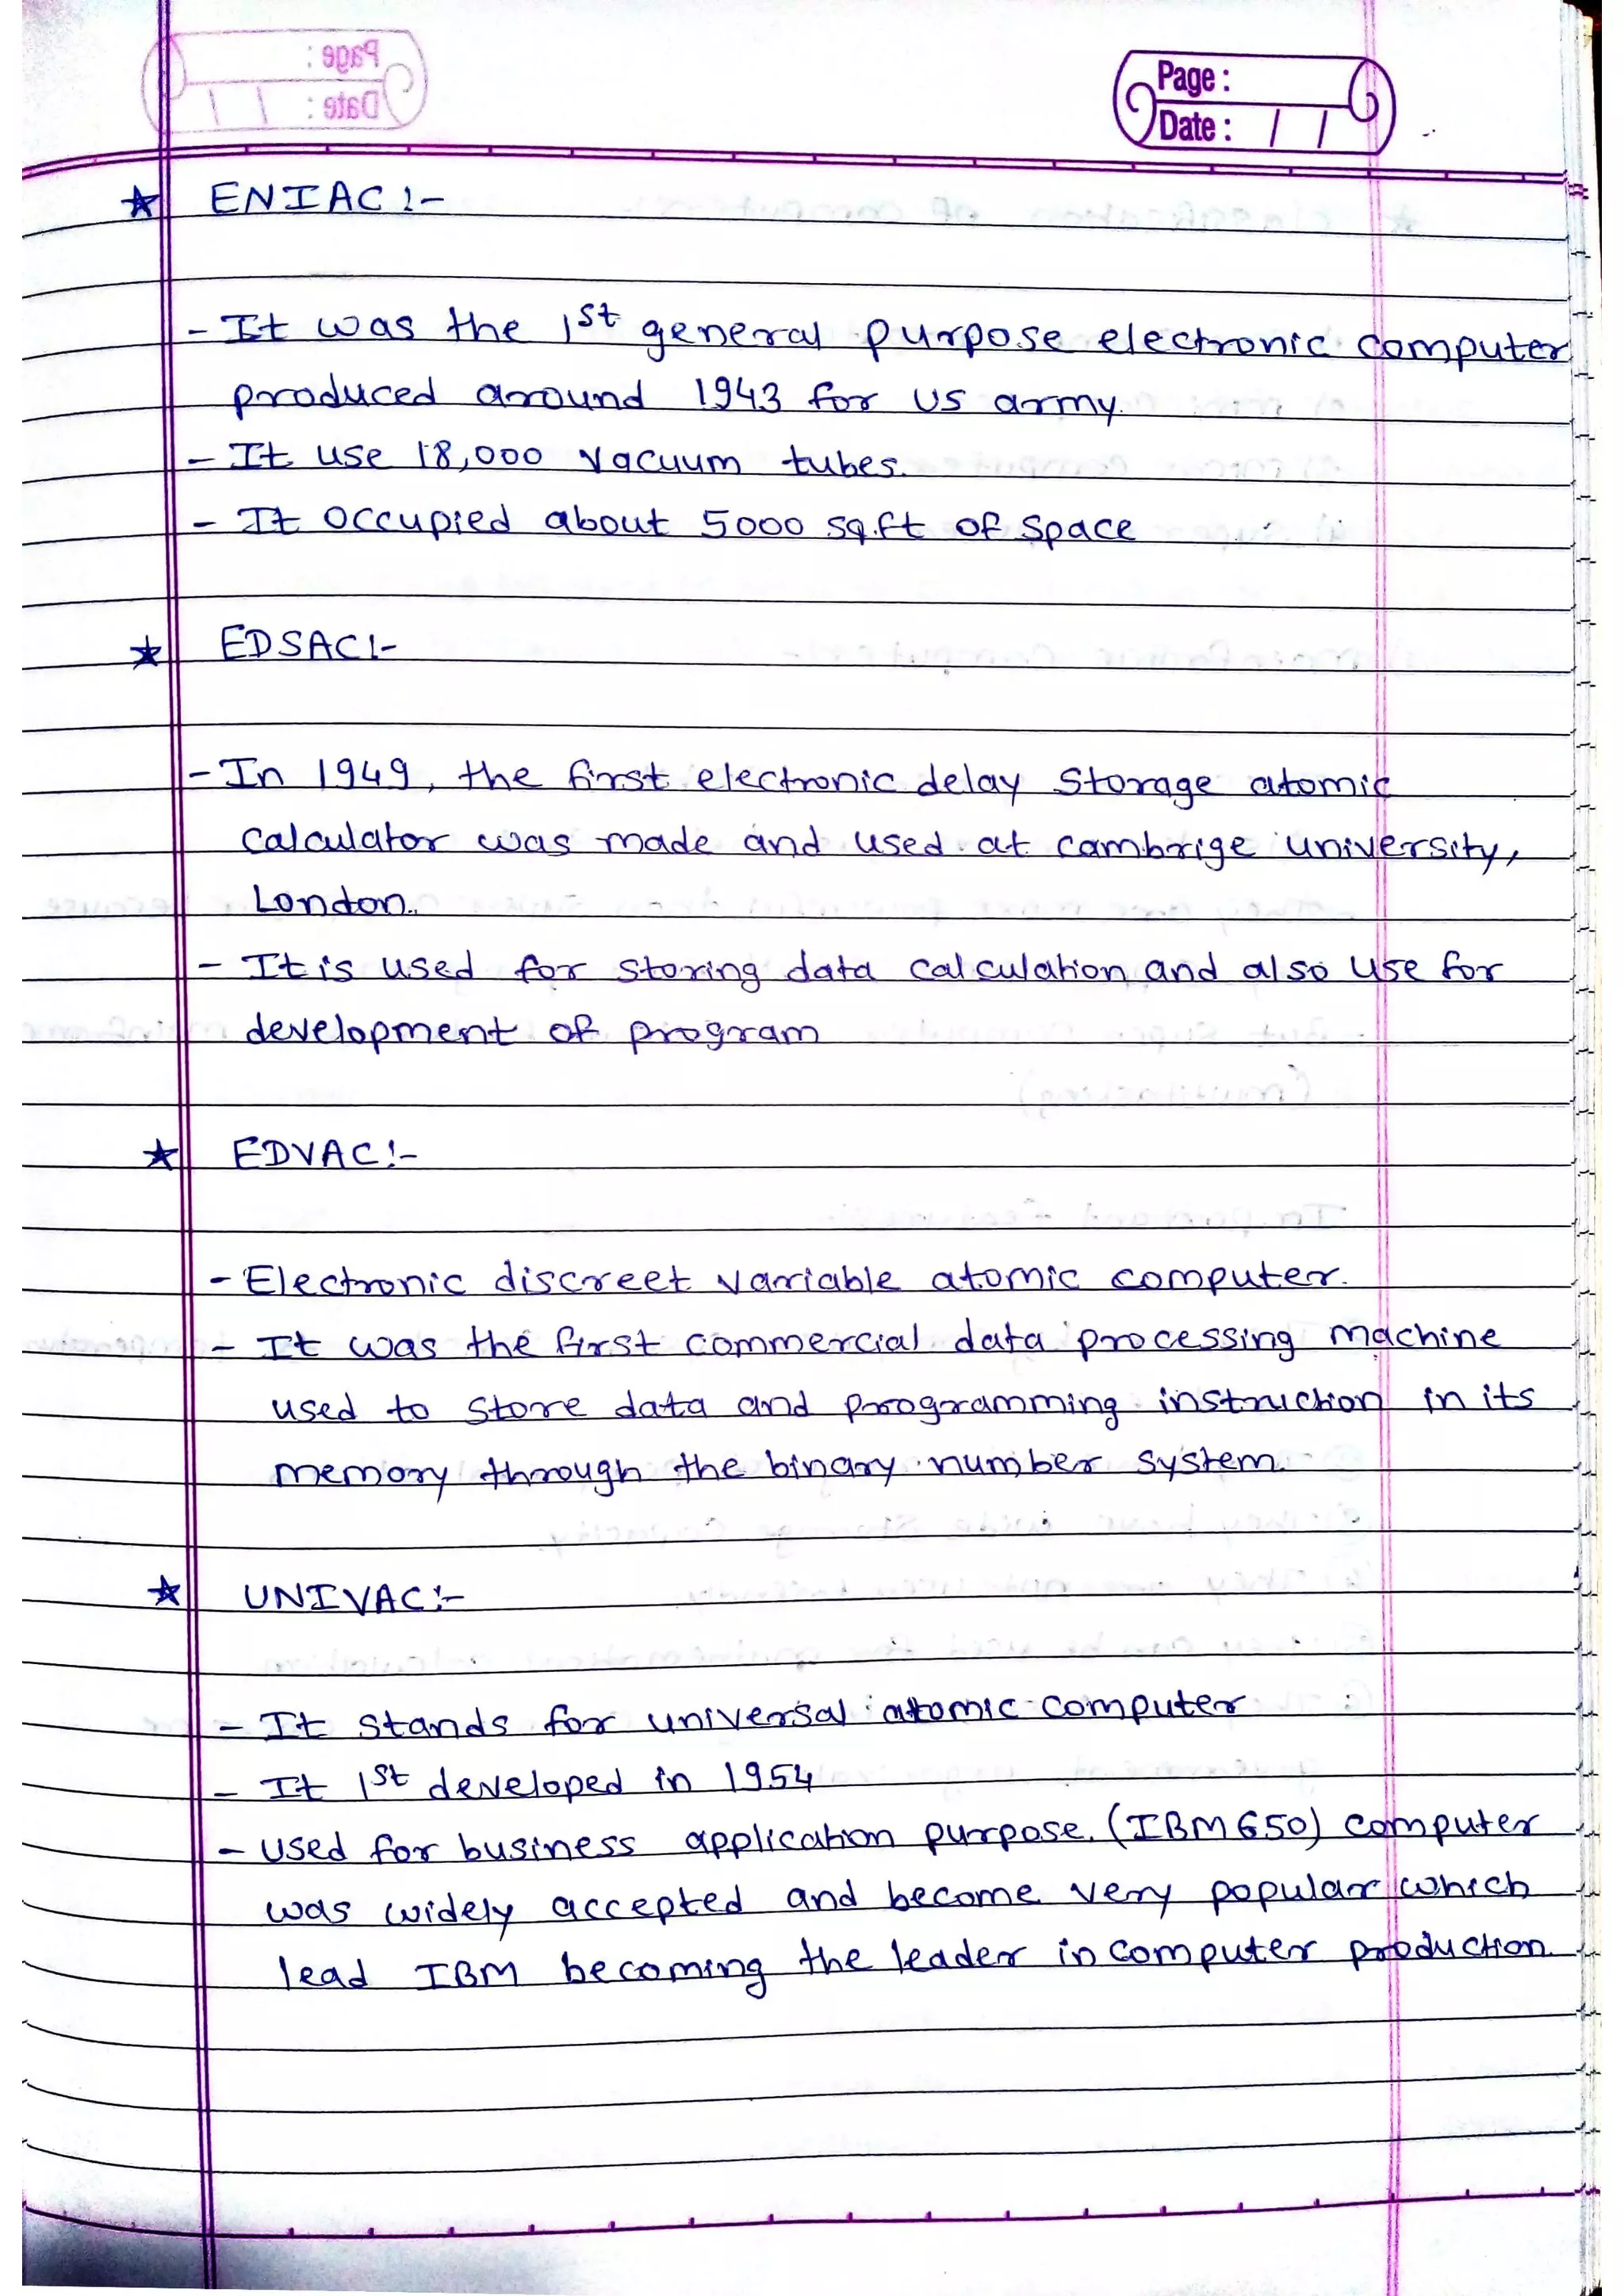 Page :
Date : / /
Page :
Date : / /
★ ENIAC :-
- It was the 1st general purpose electronic computer
produced around 1943 for US army.
- It use 18,000 vacuum tubes.
- It occupied about 5000 sq.ft of space
★ EDSAC :-
- In 1949, the first electronic delay storage atomic
calculator was made and used at cambrige university,
London.
- It is used for storing data calculation and also use for
development of program
★ EDVAC :-
- Electronic discreet variable atomic computer.
- It was the first commercial data processing machine
used to store data and programming instruction in its
memory through the binary number system.
★ UNIVAC :-
- It stands for universal atomic computer
- It 1st developed in 1954
- Used for business application purpose. (IBM 650) computer
was widely accepted and become very popular which
lead IBM becoming the leader in computer production.